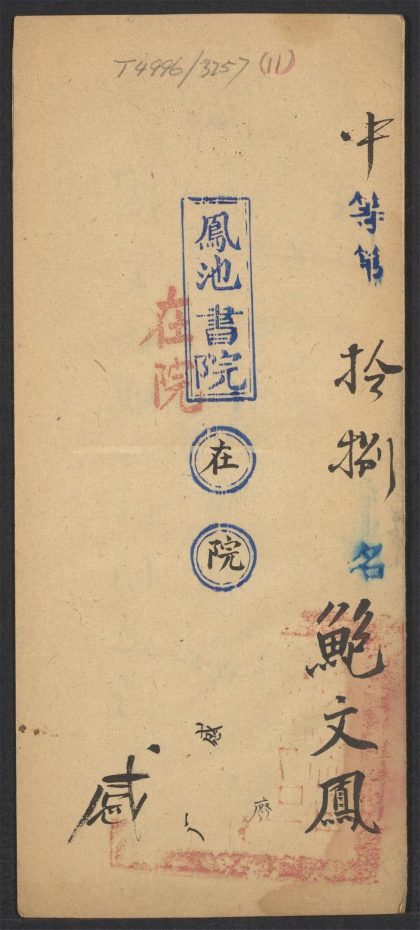 T4996/3257 (11)
中等第拾捌名鮑文鳳
鳳池書院
在院
在院
感